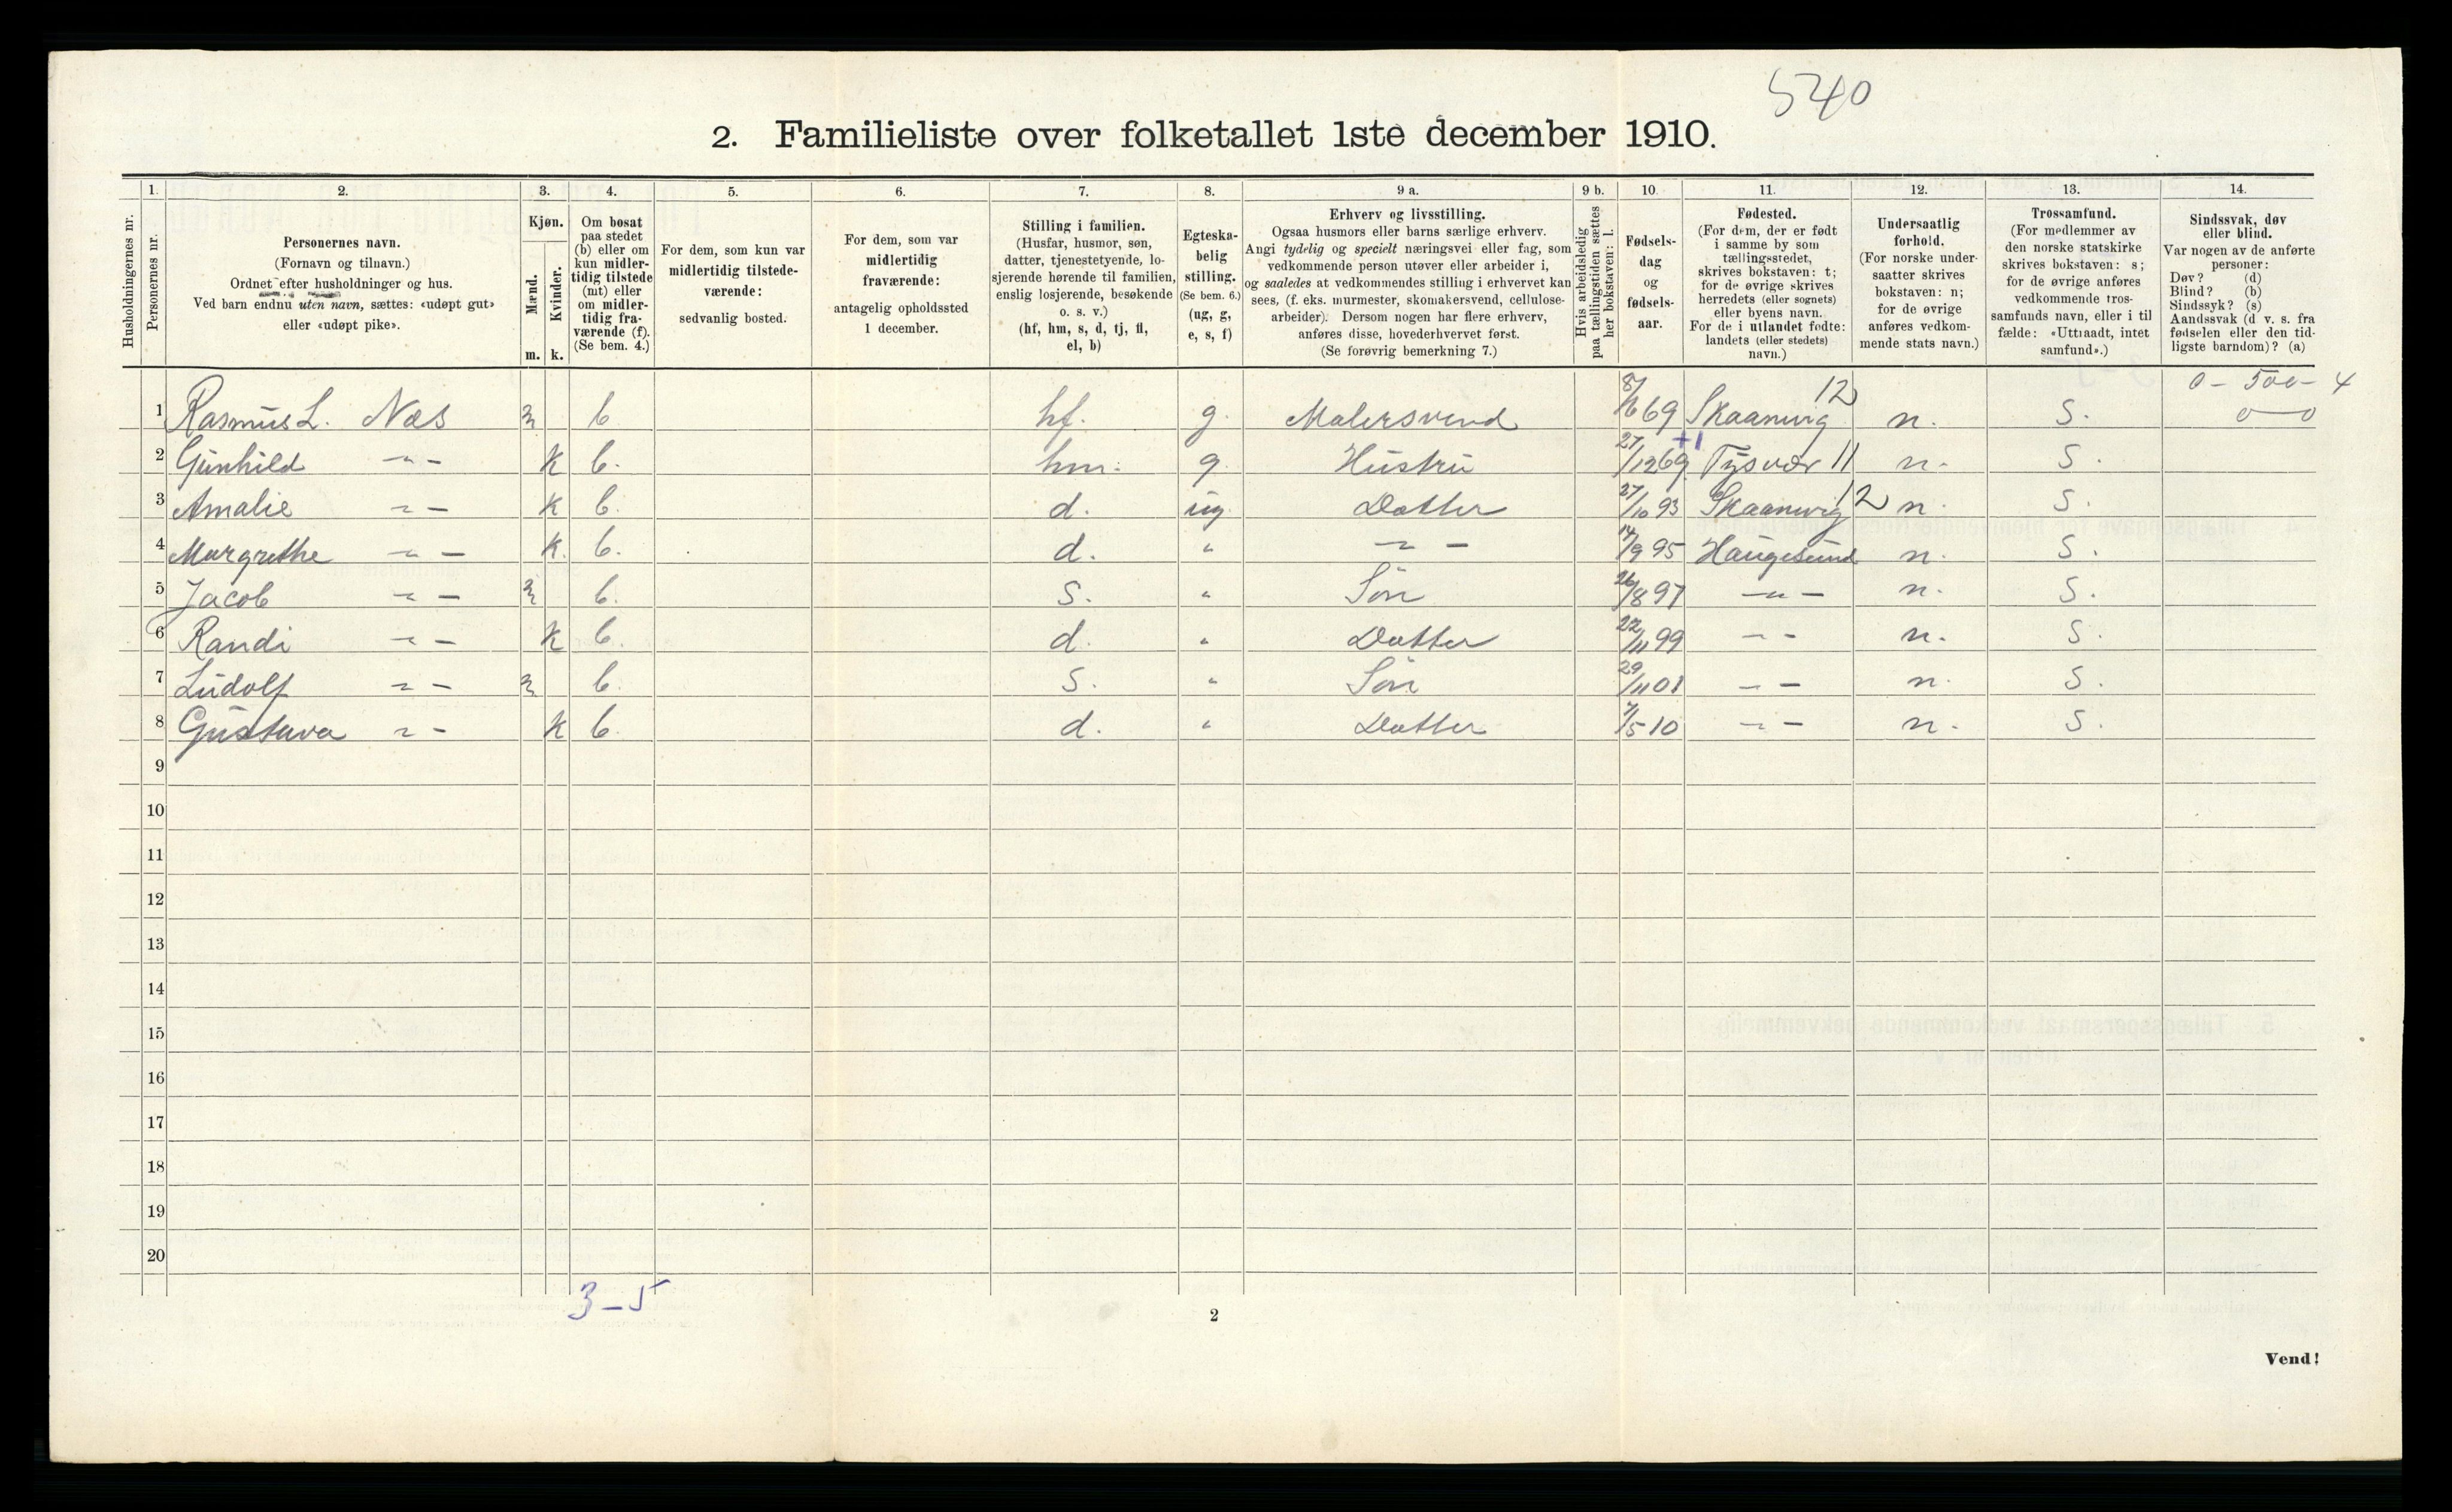 540
2. Familieliste over folketallet 1ste december 1910.
1. 2. 3. 4. 5. 6. 7. 8. 9 a. 9 b. 10. 11. 12. 13. 14.
Husholdningernes nr.
Personernes nr.
Personernes navn.
(Fornavn og tilnavn.)
Ordnet efter husholdninger og hus.
Ved barn endnu uten navn, sættes: «udøpt gut»
eller «udøpt pike».
Kjøn.
Mænd.
Kvinder.
m. k.
Om bosat
paa stedet
(b) eller om
kun midler-
tidig tilstede
(mt) eller
om midler-
tidig fra-
værende (f).
(Se bem. 4.)
For dem, som kun var
midlertidig tilstede-
værende:
sedvanlig bosted.
For dem, som var
midlertidig
fraværende:
antagelig opholdssted
1 december.
Stilling i familien.
(Husfar, husmor, søn,
datter, tjenestetyende, lo-
sjerende hørende til familien,
enslig losjerende, besøkende
o. s. v.)
(hf, hm, s, d, tj, fl,
el, b)
Egteska-
belig
stilling.
(Se bem. 6.)
(ug, g,
e, s, f)
Erhverv og livsstilling.
Ogsaa husmors eller barns særlige erhverv.
Angi tydelig og specielt næringsvei eller fag, som
vedkommende person utøver eller arbeider i,
og saaledes at vedkommendes stilling i erhvervet kan
sees, (f. eks. murmester, skomakersvend, cellulose-
arbeider). Dersom nogen har flere erhverv,
anføres disse, hovederhvervet først.
(Se forøvrig bemerkning 7.)
Hvis arbeidsledig
paa tællingstiden sættes
her bokstaven: l.
Fødsels-
dag
og
fødsels-
aar.
Fødested.
(For dem, der er født
i samme by som
tællingsstedet,
skrives bokstaven: t;
for de øvrige skrives
herredets (eller sognets)
eller byens navn.
For de i utlandet fødte:
landets (eller stedets)
navn.)
Undersaatlig
forhold.
(For norske under-
saatter skrives
bokstaven: n;
for de øvrige
anføres vedkom-
mende stats navn.)
Trossamfund.
(For medlemmer av
den norske statskirke
skrives bokstaven: s;
for de øvrige anføres
vedkommende tros-
samfunds navn, eller i til
fælde: «Uttraadt, intet
samfund».)
Sindssvak, døv
eller blind.
Var nogen av de anførte
personer:
Døv? (d)
Blind? (b)
Sindssyk? (s)
Aandssvak (d v. s. fra
fødselen eller den tid-
ligste barndom)? (a)
0 - 500 - 4
1 Rasmus L. Næs m b hf. g. Malersvend 8/6 69 Skaanevig 12 n. S. 0 - 0
2 Gunhild -"- k b. hm. g. Hustru 27/12 69 +1 Tysvær 11 n. S.
3 Amalie -"- k b. d. ug. Datter 27/10 93 Skaanevig 12 n. S.
4 Margrethe -"- k. b. d. " -"- 14/9 95 Haugesund n. S.
5 Jacob -"- m b. S. " Søn 26/8 97 -"- n. S.
6 Randi -"- k b. d. " Datter 22/11 99 -"- n. S.
7 Ludolf -"- m b. S. " Søn 29/11 01 -"- n. S.
8 Gustava -"- k b. d. " Datter 7/5 10 -"- n. S.
9
10
11
12
13
14
15
16
17
18
19
20
3-5
2
Vend!